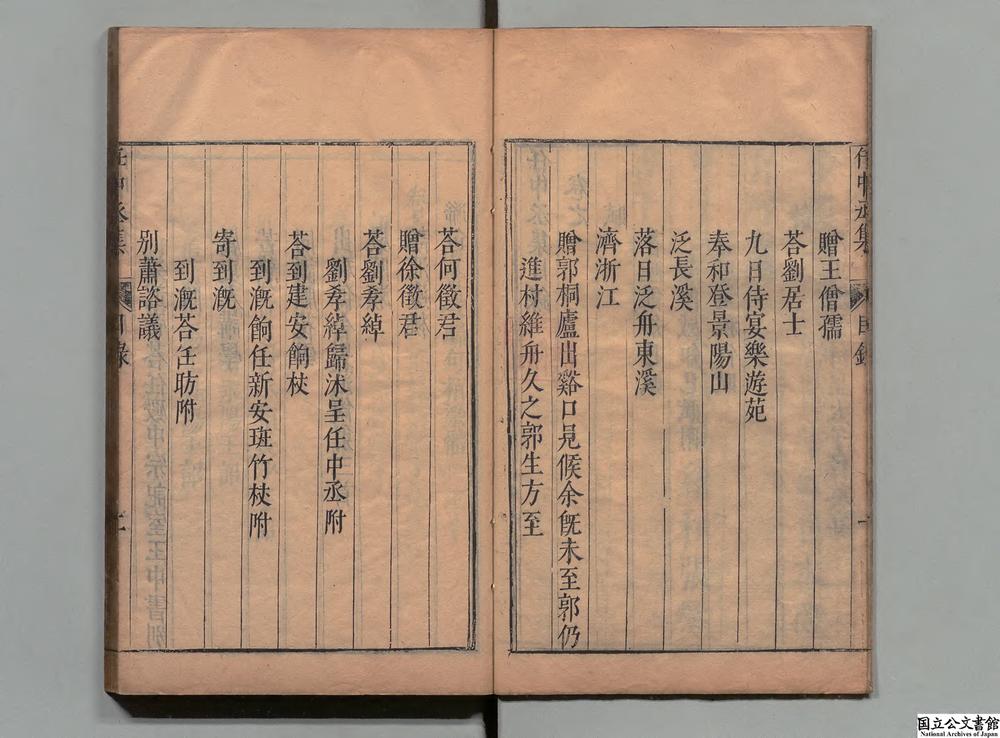 任中丞集 目錄 一
贈王僧孺
荅劉居士
九日侍宴樂遊苑
奉和登景陽山
泛長溪
落日泛舟東溪
濟浙江
贈郭桐廬出谿口見候余旣未至郭仍
進村維舟久之郭生方至
荅何徵君
贈徐徵君
荅劉孝綽
劉孝綽歸沐呈任中丞附
荅到建安餉杖
到漑餉任新安班竹杖附
寄到漑
到漑荅任昉附
別蕭諮議
任中丞集 目錄 二
国立公文書館
National Archives of Japan